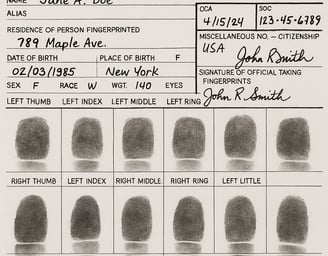 NAME Jane A. Doe
ALIAS
RESIDENCE OF PERSON FINGERPRINTED
789 Maple Ave.
DATE OF BIRTH
02/03/1985
PLACE OF BIRTH F
New York
SEX F RACE W WGT. 140 EYES
OCA
4/15/24
SOC
123-45-6789
MISCELLANEOUS NO. — CITIZENSHIP
USA
John R Smith
SIGNATURE OF OFFICIAL TAKING
FINGERPRINTS
John R. Smith
LEFT THUMB LEFT INDEX LEFT MIDDLE LEFT RING
RIGHT THUMB LEFT INDEX RIGHT MIDDLE RIGHT RING LEFT LITTLE